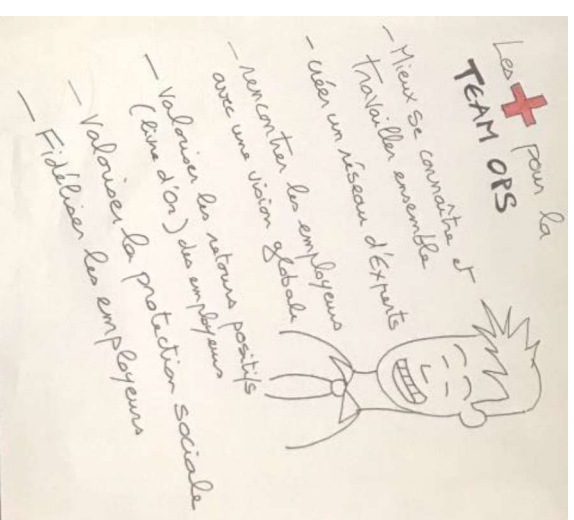 Les + pour la
TEAM OPS
- Mieux se connaître et
travailler ensemble
- créer un réseau d'Experts
- rencontrer les employeurs
avec une vision globale
- Valoriser les retours positifs
(livre d'or) des employeurs
- Valoriser la protection sociale
- Fidéliser les employeurs